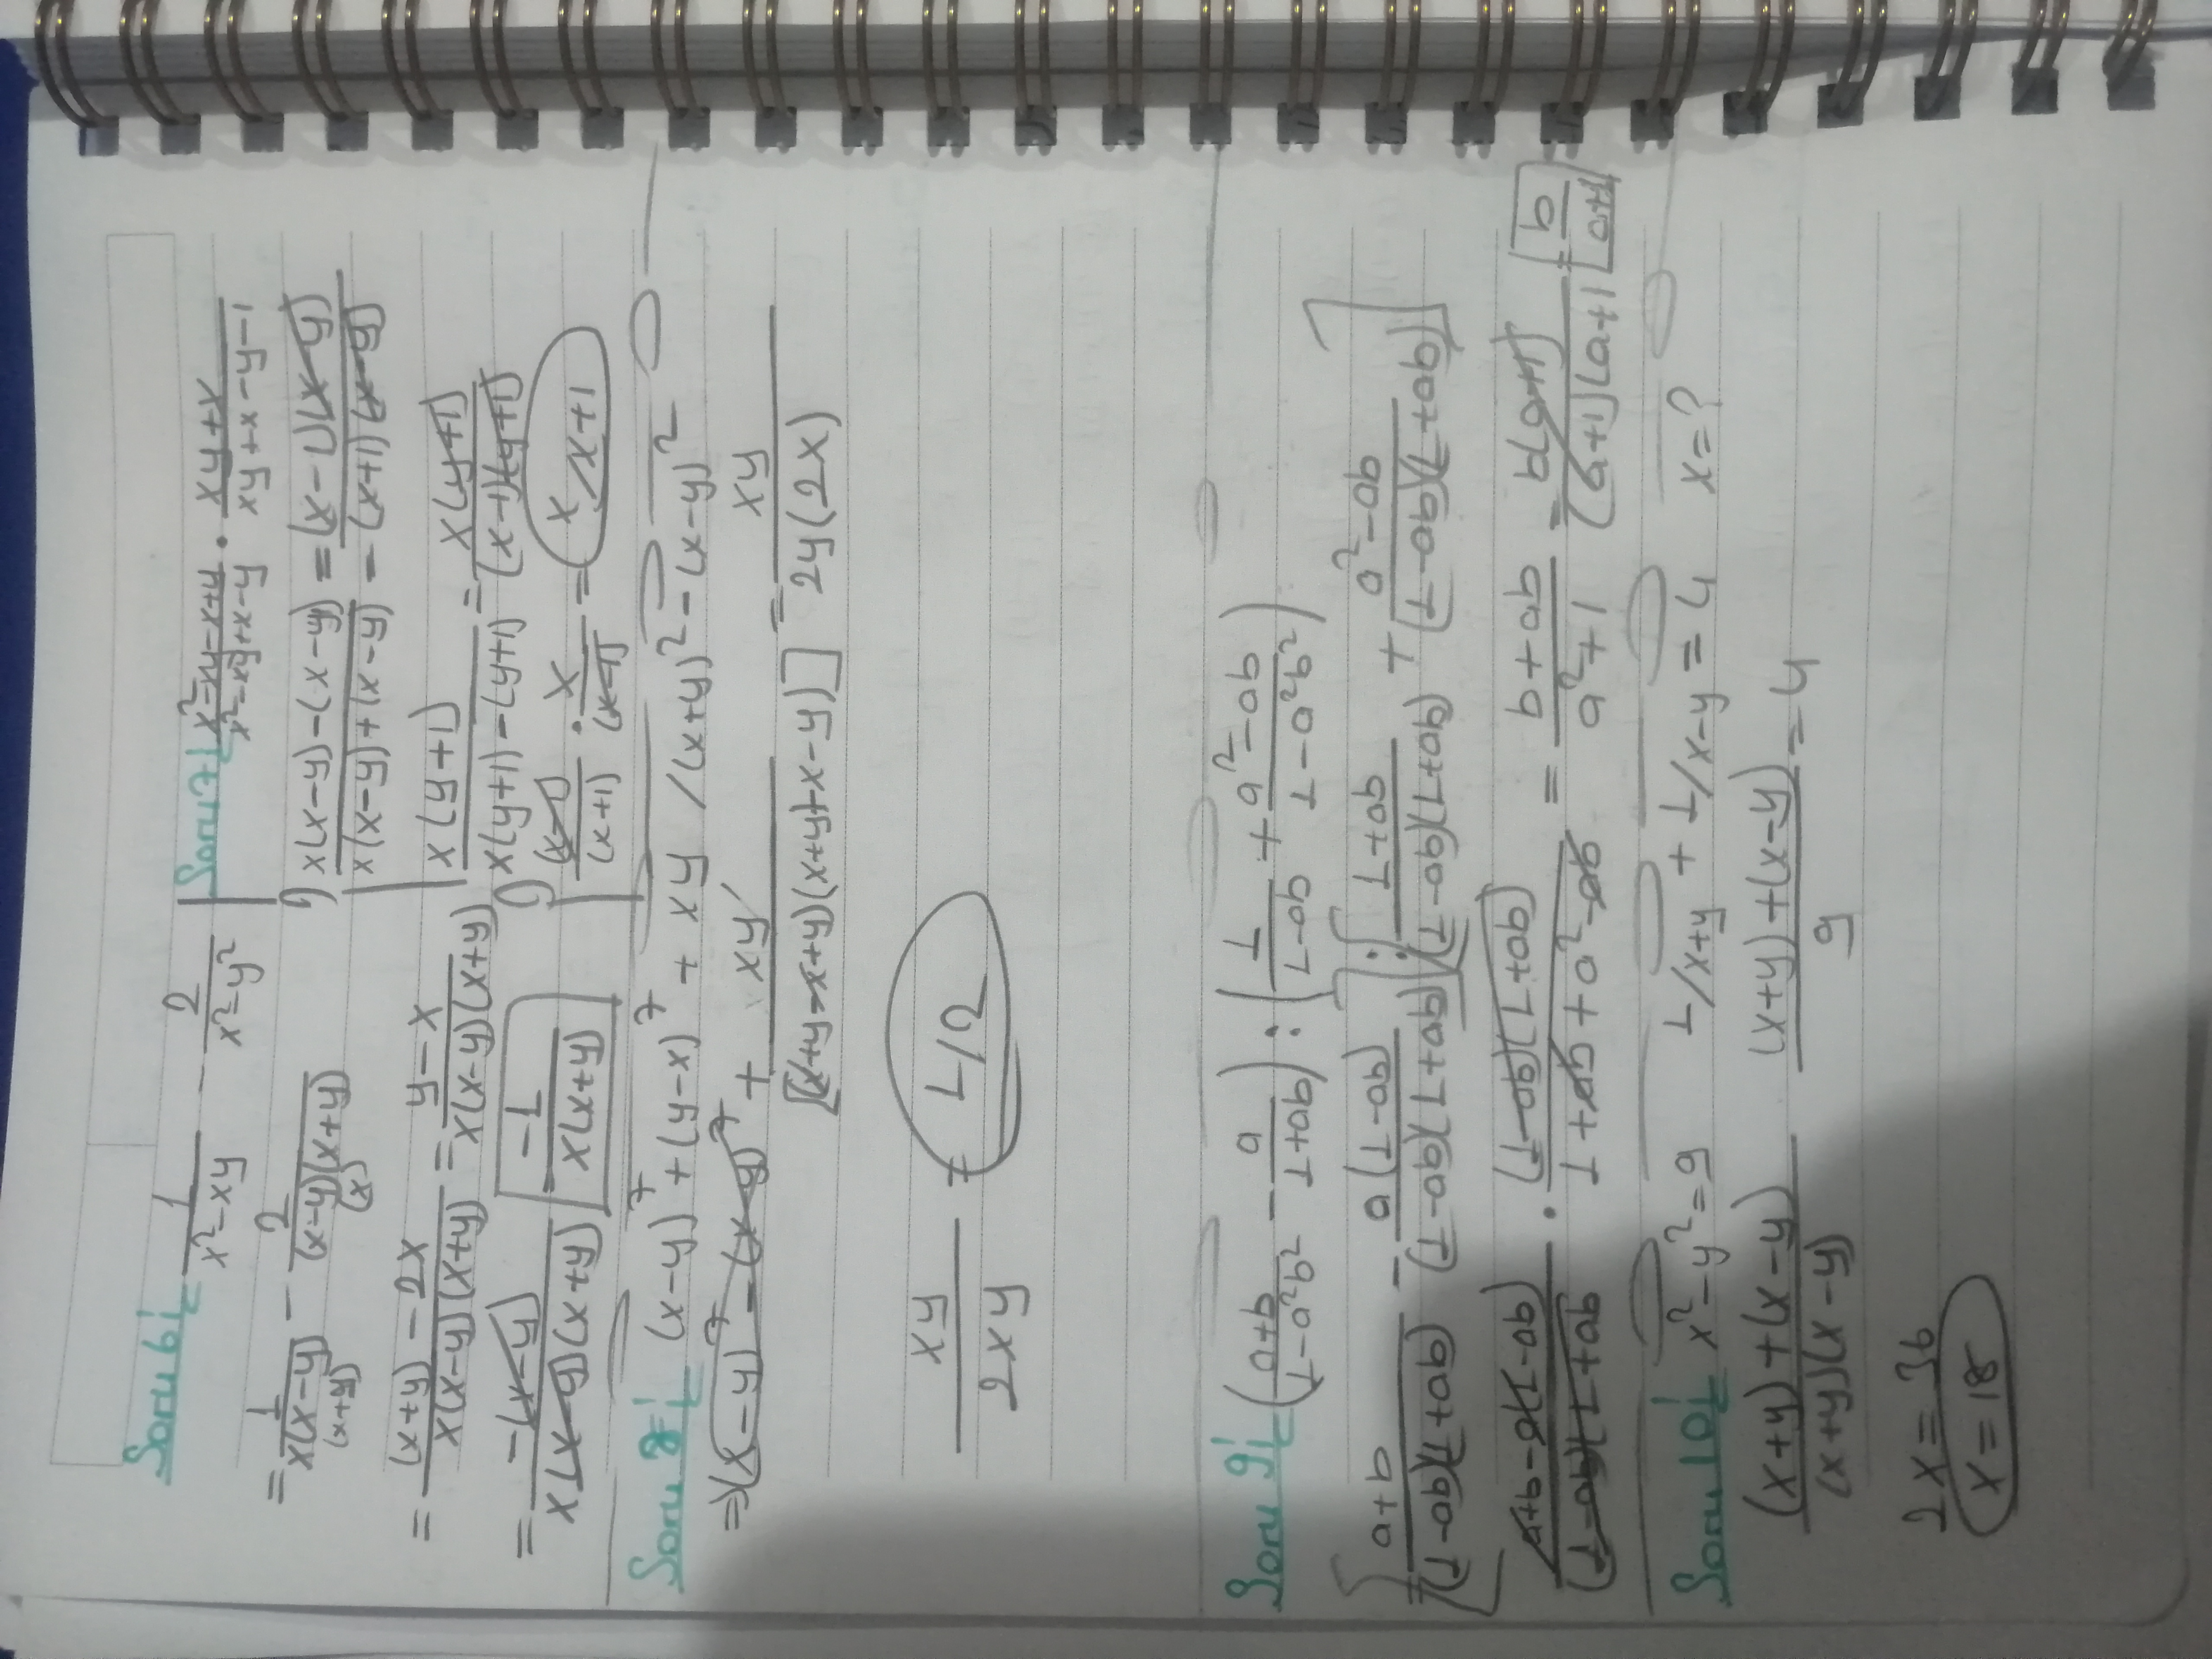 Soru 6: 1/(x²-xy) - 2/(x²-y²)
= 1/(x(x-y)) (x+y) - 2/((x-y)(x+y)) (x)
= ((x+y)-2x)/(x(x-y)(x+y)) = (y-x)/(x(x-y)(x+y))
= -(x-y)/(x(x-y)(x+y)) = -1/(x(x+y))
Soru 7: (x²-xy-x+y)/(x²-xy+x-y) · (xy+x)/(xy+x-y-1)
1) (x(x-y)-(x-y))/(x(x-y)+(x-y)) = ((x-1)(x-y))/((x+1)(x-y))
x(y+1)/(x(y+1)-(y+1)) = x(y+1)/((x-1)(y+1))
(x-1)/(x+1) · x/(x-1) = x/x+1
Soru 8: (x-y)⁷ + (y-x)⁷ + xy /(x+y)² - (x-y)²
=> (x-y)⁷ - (x-y)⁷ + xy/[(x+y-x+y)(x+y+x-y)] = xy/(2y(2x))
xy/2xy = 1/2
Soru 9: ((a+b)/(1-a²b²) - a/(1+ab)) : (1/(1-ab) + (a²-ab)/(1-a²b²))
= [(a+b)/((1-ab)(1+ab)) - a(1-ab)/((1-ab)(1+ab))] : [(1+ab)/((1-ab)(1+ab)) + (a²-ab)/((1-ab)(1+ab))]
(a+b-a(1-ab))/((1-ab)(1+ab)) · ((1-ab)(1+ab))/(1+ab+a²-ab) =
Soru 10: x²-y²=9 1/x+y + 1/x-y = 4 x=?
((x+y)+(x-y))/((x+y)(x-y)) ((x+y)+(x-y))/9 = 4
2x = 36
x = 18